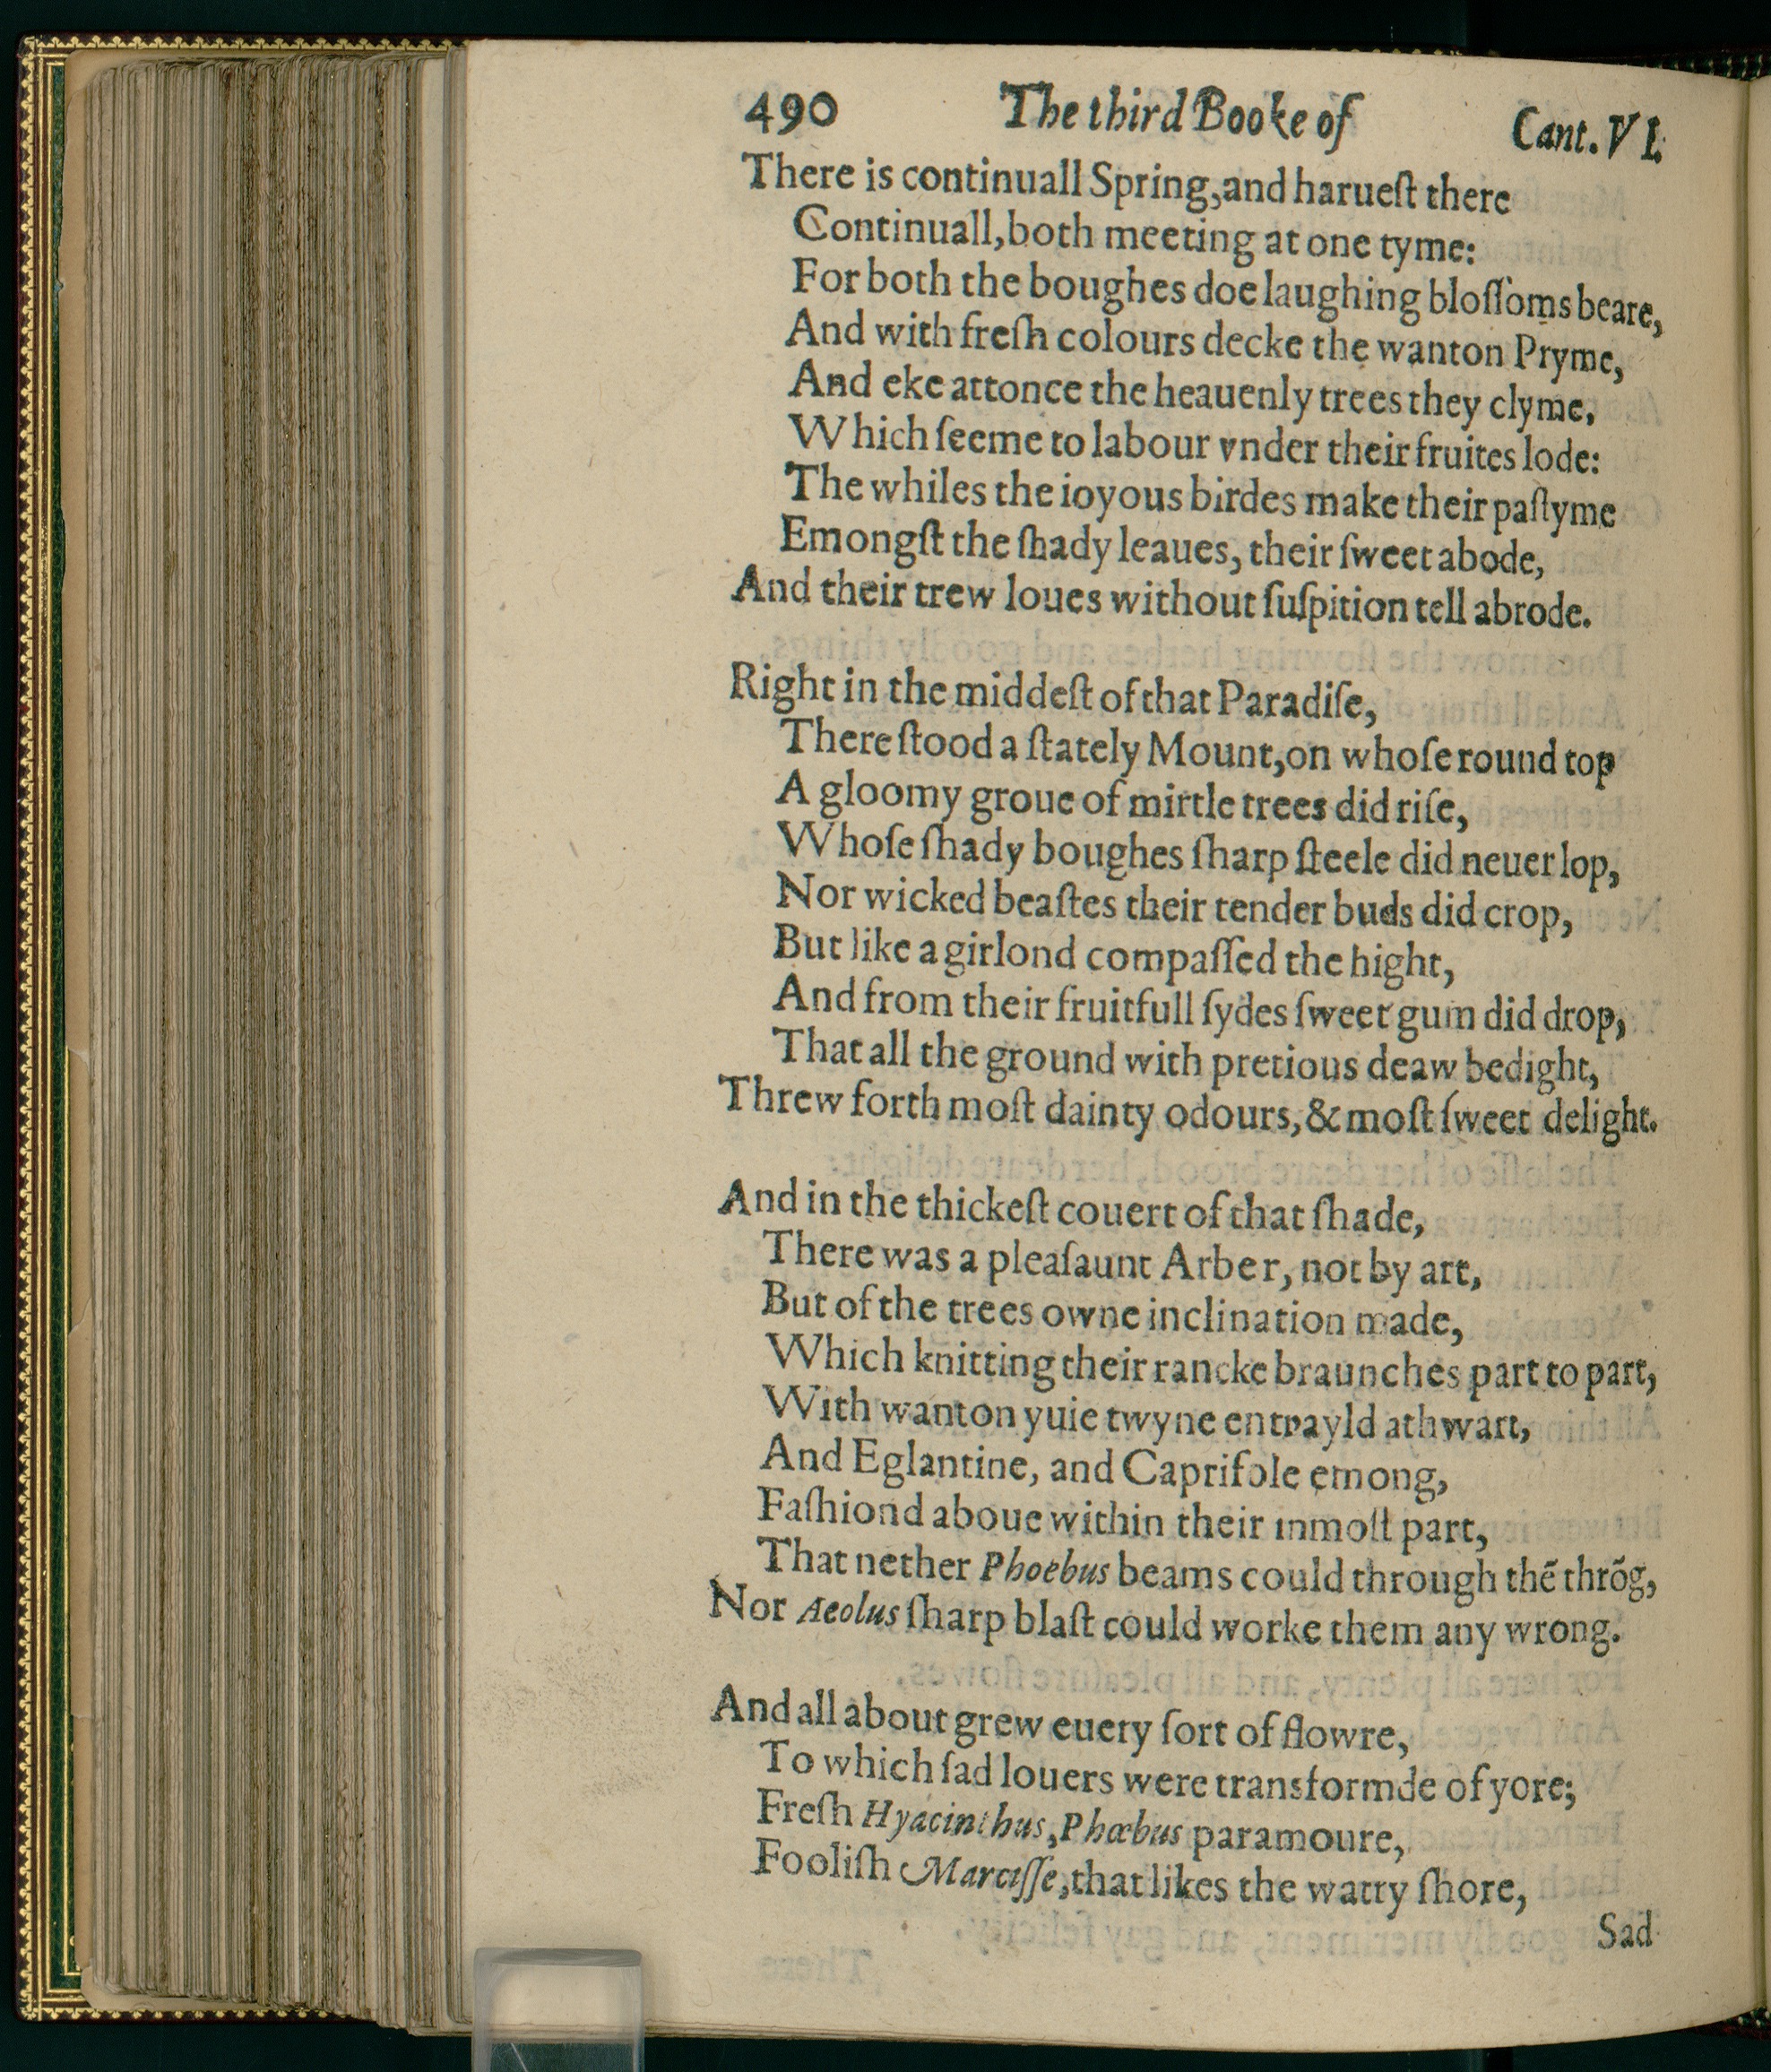 490 The third Booke of Cant. VI.
There is continuall Spring, and harueſt there
Continuall, both meeting at one tyme:
For both the boughes doe laughing bloſſoms beare,
And with freſh colours decke the wanton Pryme,
And eke attonce the heauenly trees they clyme,
Which ſeeme to labour vnder their fruites lode:
The whiles the ioyous birdes make their paſtyme
Emongſt the ſhady leaues, their ſweet abode,
And their trew loues without ſuſpition tell abrode.
Right in the middeſt of that Paradiſe,
There ſtood a ſtately Mount, on whoſe round top
A gloomy groue of mirtle trees did riſe,
Whoſe ſhady boughes ſharp ſteele did neuer lop,
Nor wicked beaſtes their tender buds did crop,
But like a girlond compaſſed the hight,
And from their fruitfull ſydes ſweet gum did drop,
That all the ground with pretious deaw bedight,
Threw forth moſt dainty odours, & moſt ſweet delight.
And in the thickeſt couert of that ſhade,
There was a pleaſaunt Arber, not by art,
But of the trees owne inclination made,
Which knitting their rancke braunches part to part,
With wanton yuie twyne entrayld athwart,
And Eglantine, and Caprifole emong,
Faſhiond aboue within their inmoſt part,
That nether Phoebus beams could through thẽ thrõg,
Nor Aeolus ſharp blaſt could worke them any wrong.
And all about grew euery ſort of flowre,
To which ſad louers were transformde of yore;
Freſh Hyacinthus, Phœbus paramoure,
Fooliſh Marciſſe, that likes the watry ſhore,
Sad